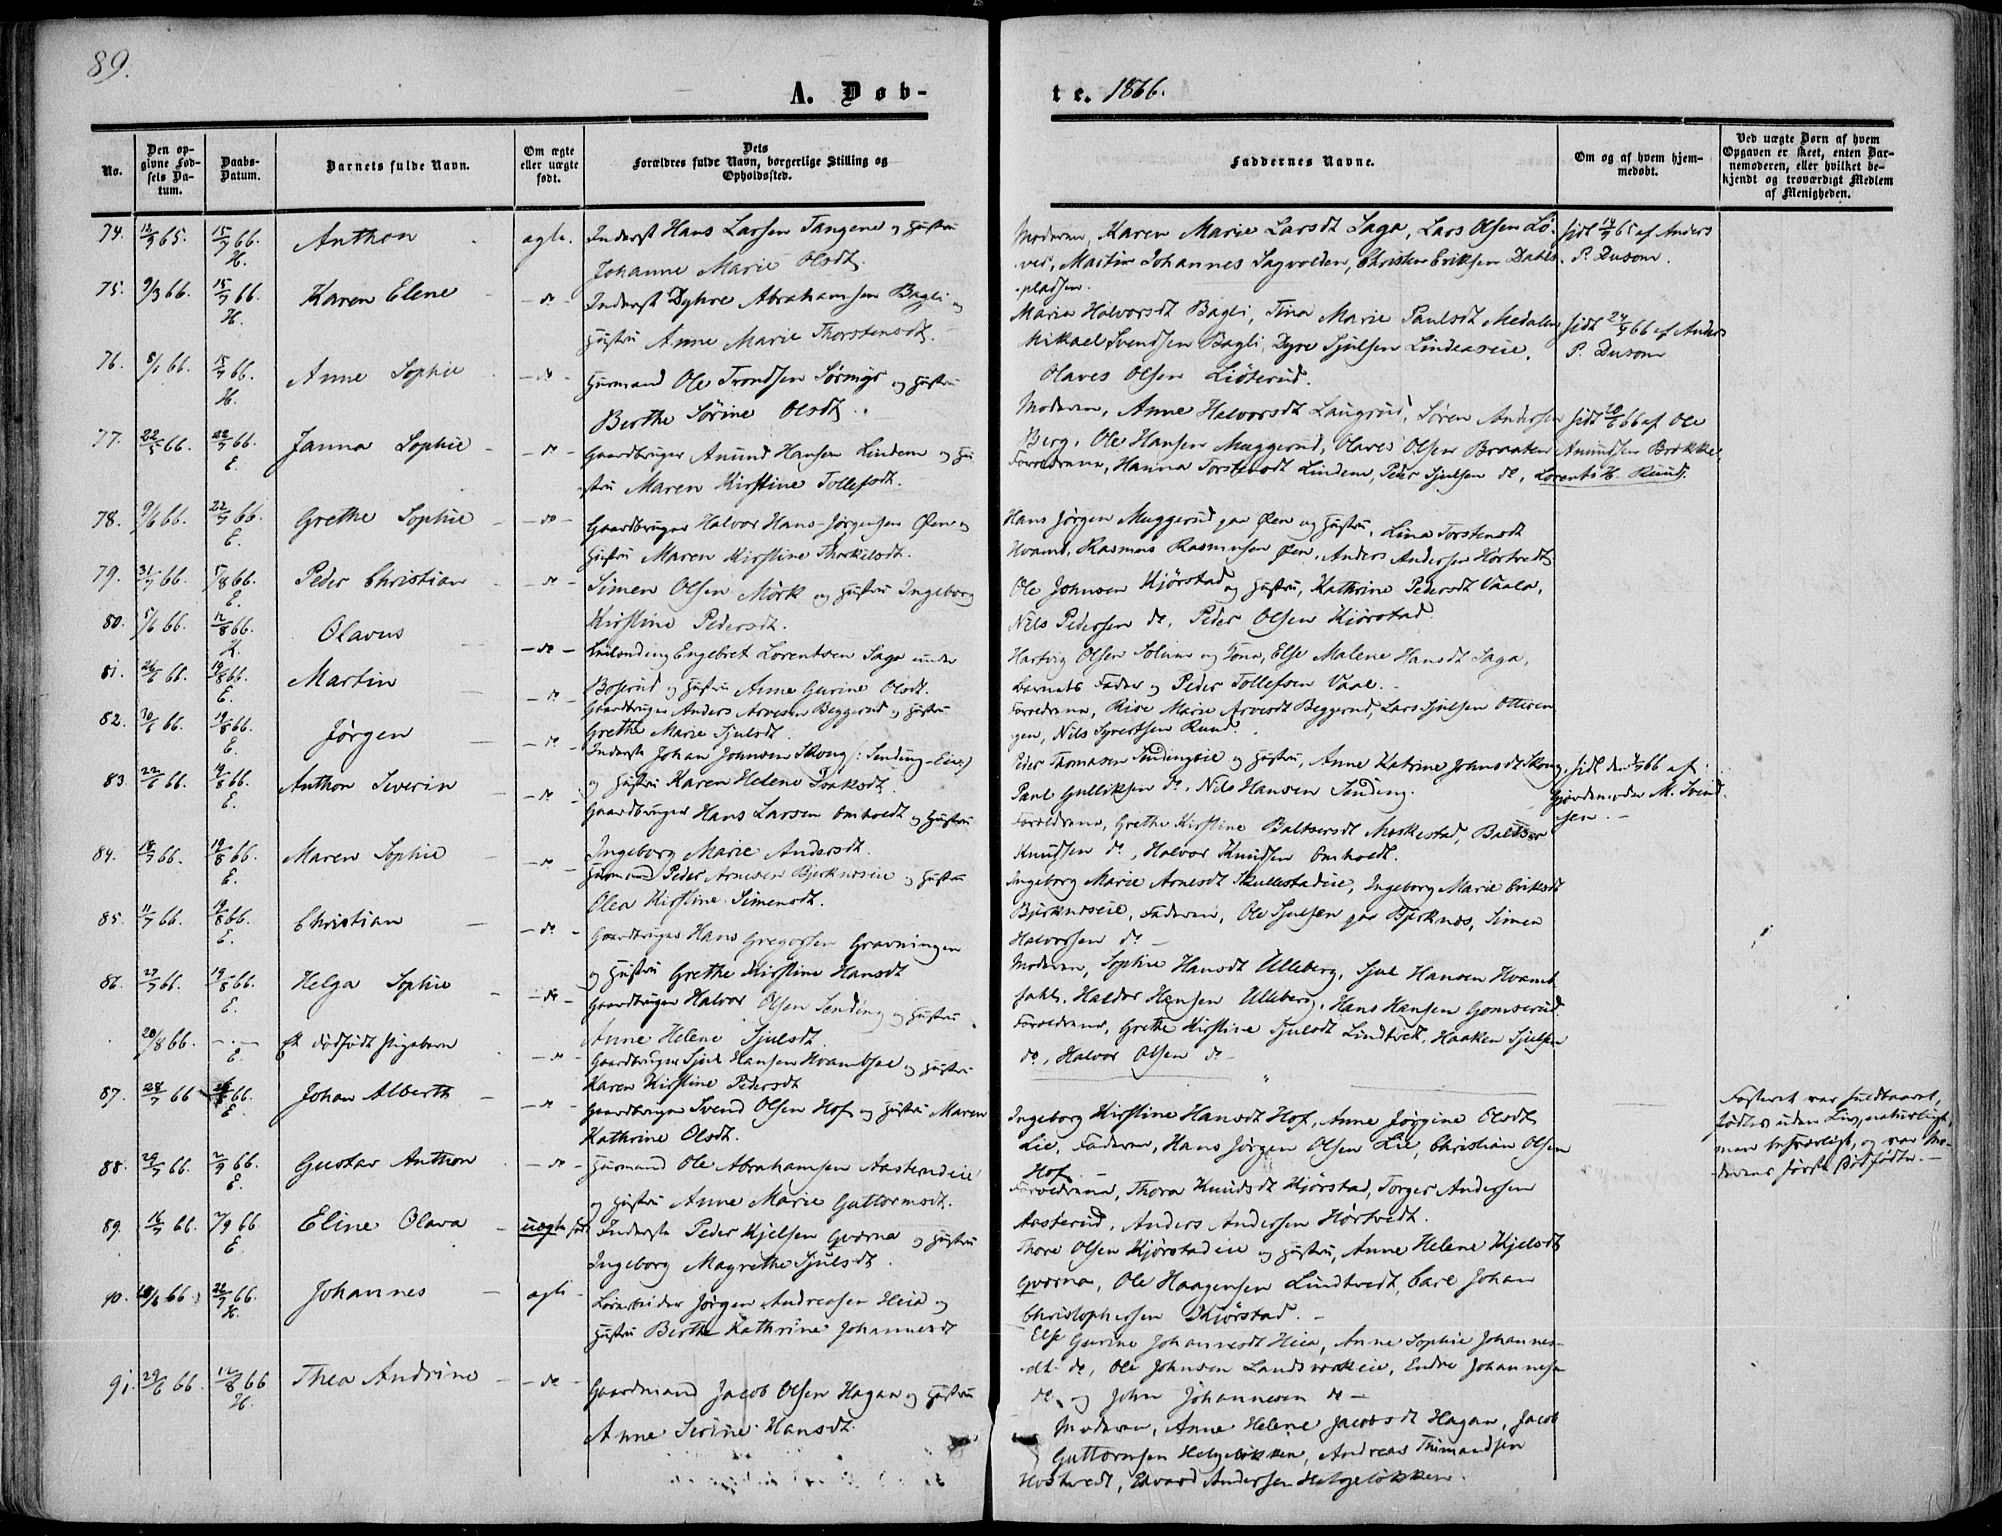 89.
A. Døb-
te. 1866.
No.
Den op-
givne Fød-
sels Da-
tum.
Daabs-
Datum.
Barnets fulde Navn.
Om ægte
eller uægte
født.
Dets
Forældres fulde Navn, borgerlige Stilling og
Opholdssted.
Faddernes Navne.
Om og af hvem hjem-
medøbt.
Ved uægte Børn af hvem
Opgaven er skeet, enten Bar-
nemoderen, eller hvilket be-
kjendt og troværdigt Medlem
af Menigheden.
74. 65. 15/7 66. H. Anthon ægte. Inderst Hans Larsen Tangene og Hustru
Johanne Marie Olsdt.
Moderen, Karen Marie Larsdt Saga, Lars Olsen Lø-
ver, Martin Johannes Sagvolden, Christen Eriksen Dahls-
pladsen.
65 af Anders
P. Dusom.
75. 9/3 66. 15/7 66. H. Karen Elene - do - Inderst Dyhre Abrahamsen Bagli og
Hustru Anne Marie Thorstensdt.
Maria Halvorsdt Bagli, Tina Marie Paulsdt Medalen
Mikael Svendsen Bagli, Dyre Sjulsen Lindeaseie,
Olaves Olsen Liøterud.
66 af Anders
P. Dusom
76. 66. 15/7 66. H. Anne Sophie - do - Husmand Ole Trondsen Sørmyr og Hustru
Berthe Sørine Olsdt.
Moderen, Anne Halvorsdt Laugrud, Søren Andersen
Berg, Ole Hansen Muggerud, Olaves Olsen Braaten
66 af Ole
Amundsen
77. 22/5 66. 22/7 66. E. Janna Sophie - do - Gaardbruger Anund Hansen Lindem og Hu-
stru Maren Kirstine Tollefsdt.
Forældrene, Hanna Torstensdt Lindem, Peder Sjulsen do, Lorents H. Ruud.
78. 9/6 66. 22/7 66. E. Grethe Sophie - do - Gaardbruger Halvor Hans-Jørgensen Øen og
Hustru Maren Kirstine Thorkilsdt.
Hans Jørgen Muggerud paa Øen og Hustru, Lina Torstensdt
Hvamb, Rasmus Rasmusen Øen, Anders Andersen Hørtvedt
79. 31/7 66. 5/8 66. E. Peder Christian - do - Simen Olsen Mørk og Hustru Ingeborg
Kirstine Pedersdt.
Ole Johnsen Kjørstad og Hustru, Kathrine Pedersdt Vaala,
Nils Pedersen do, Peder Olsen Kjørstad.
80. 5/6 66. 12/8 66. H. Olavus - do - Engebret Lorentsen Saga under
Boserud og Hustru Anne Gurine Olsdt.
Hartvig Olsen Solum og Kone, Else Malene Hansdt Saga,
Barnets Fader og Peder Tollefsen Vaal.
81. 26/6 66. 19/8 66. E. Martin - do - Gaardbruger Anders Arvesen Beggerud og Hustru
Grethe Marie Sjulsdt.
Forældrene, Marie Arvesdt Beggerud, Lars Sjulsen Otteren-
gen, Nils Syvertsen Ruud.
82. 66. 19/8 66. E. Jørgen - do - Inderste Johan Johnsen Skoug (: Sending-Eie :)
og Hustru Karen Helene Isaksdt.
Peder Thomasen Sendingeie og Hustru, Anne Katrine Johnsdt Skoug,
Paul Gulliksen do, Nils Hansen Sending.
66 af
Gjordemoder M. Svend-
sen. -
83 22/6 66. 19/8 66. E. Anthon Severin - do - Gaardbruger Hans Larsen Omholdt og Hustru
Ingeborg Marie Andersdt.
Forældrene, Grethe Kirstine Baltsersdt Moskestad, Baltser
Knudsen do, Halvor Knudsen Omholdt.
84. 18/7 66. 19/8 66. E. Maren Sophie - do - Husmand Peder Arnesen Bjerknæseie og Hustru
Olea Kirstine Simensdt.
Ingeborg Marie Arnesdt Skullestadeie, Ingeborg Marie Eriksdt
Bjerknæseie, Faderen, Ole Sjulsen paa Bjerknæs, Simen
Halvorsen do -
85. 11/7 66. 19/8 66. E. Christian - do - Gaardbruger Hans Gregorsen Gravningen
og Hustru Grethe Kirstine Hansdt
Moderen, Sophie Hansdt Ulleberg, Sjul Hansen Hvamb-
sahl, Haldor Hansen Ulleberg, Hans Hansen Gomserud.
86. 66. 19/8 66. E. Helga Sophie - do - Gaardbruger Halvor Olsen Sending og Hustru
Anne Helene Sjulsdt.
Forældrene, Grethe Kirstine Sjulsdt Lindtvet, Haaken Sjulsen
do, Halvor Olsen do -
20/8 66. - . - E. Et dødfødt Pigebarn - do - Gaardbruger Sjul Hansen Hvambsal og Hustru
Karen Kirstine Pedersdt
Fosteret var fuldbaaret,
fødtes uden Liv, naturligt,
men besværligt, og var Mo-
derens første Dødfødte. -
87. 66 66. E. Johan Alberth - do - Gaardbruger Svend Olsen Hof og Hustru Maren
Kathrine Olsdt.
Ingeborg Kirstine Hansdt Hof, Anne Jørgine Olsdt
Lie, Faderen, Hans Jørgen Olsen Lie, Christian Olsen
Hof. -
88. 66. 2/9 66. E. Gustav Anthon - do - Husmand Ole Abrahamsen Aasterudeie
og Hustru Anne Marie Guttormsdt.
Forældrene, Thora Knudsdt Kjørstad, Torger Andersen
Aasterud, Anders Andersen Hørtvedt.
89. 16/7 66. 2/9 66 E Eline Olava - uægte født Inderste Peder Kjelsen Qværna og Hustru
Ingeborg Magrethe Sjulsdt.
Thore Olsen Kjørstadeie og Hustru, Anne Helene Kjelsdt
Qværna, Ole Haagensen Lindtvedt, Carl Johan
Christophersen Kjørstad. -
90. 66 22/7 66. H. Johannes - ægte - Jørgen Andreasen Heia og
Hustru Berthe Kathrine Johannesdt
Else Gurine Johannesdt Heia, Anne Sophie Johannes-
dt do, Ole Johnsen Landsværkeie, Endre Johannesen
do og John Johannesen do -
91. 29/6 66. 12/8 66 H. Thea Andrine - do - Gaardmand Jacob Olsen Hagan og Hustru
Anne Serine Hansdt
Moderen, Anne Helene Jacobsdt Hagan, Jacob
Guttormsen Helgeløkken, Andreas
Edvard Andersen Helgeløkken.